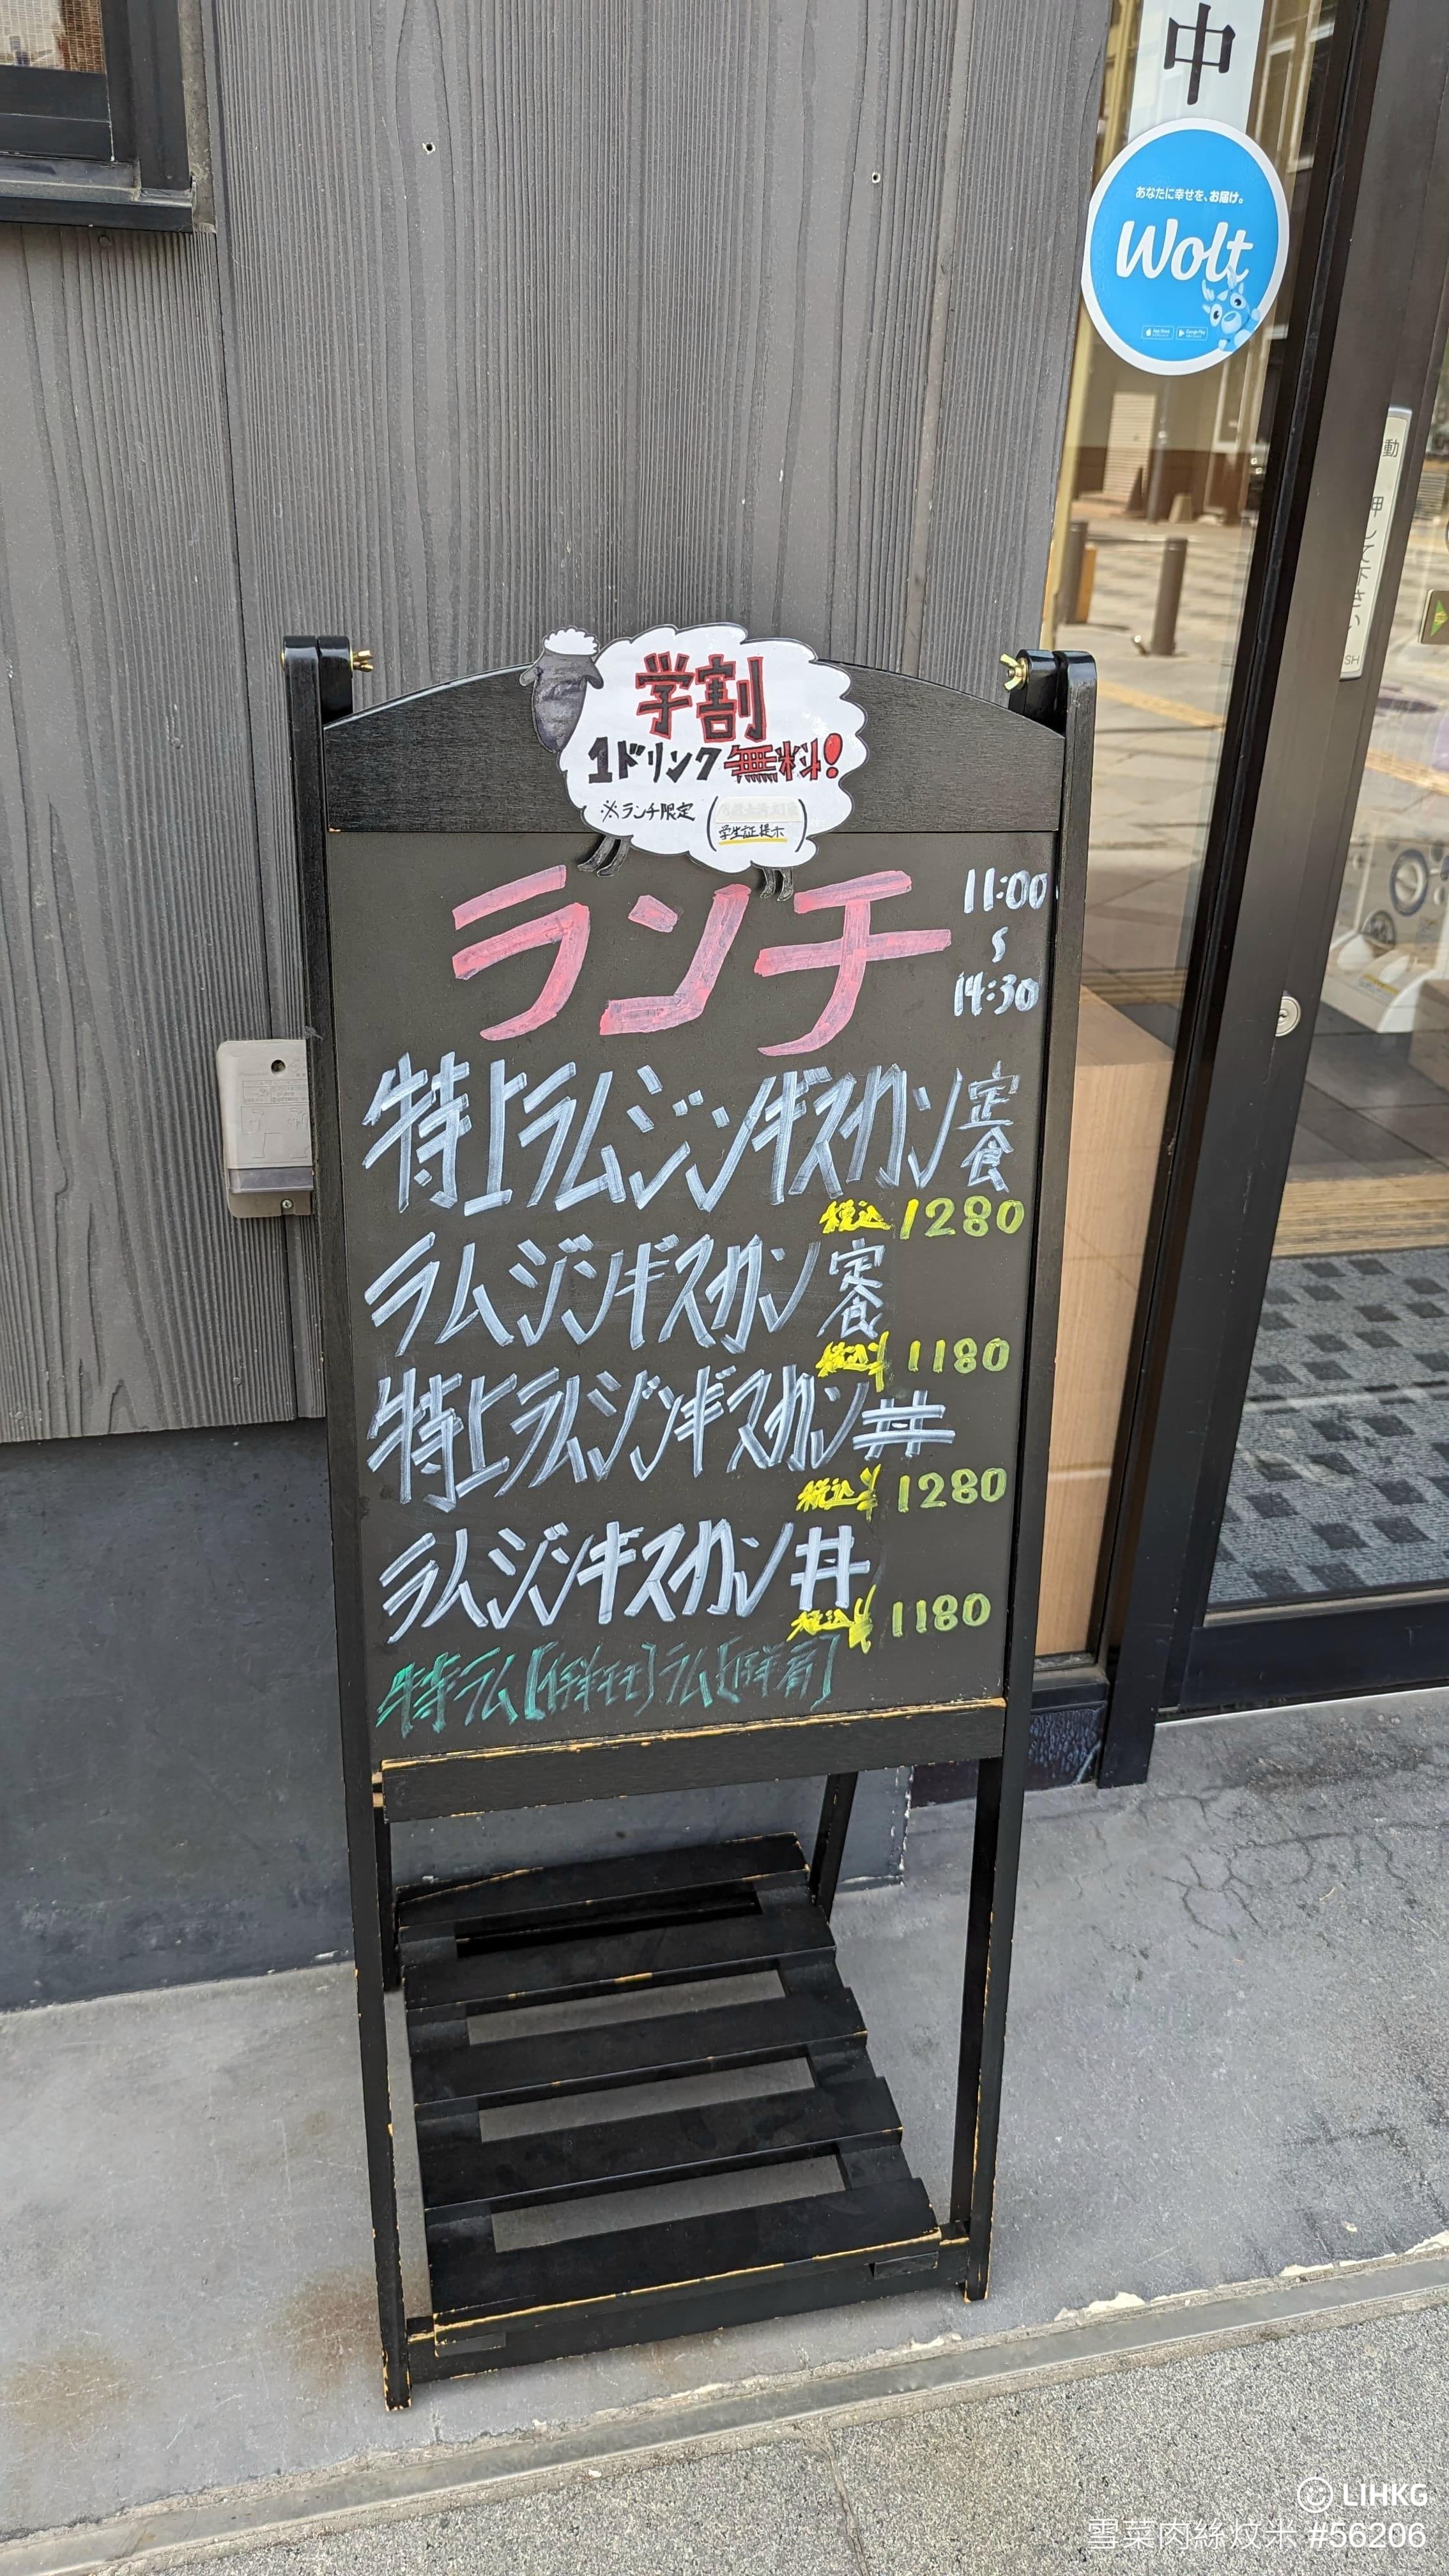 中
あなたに幸せを、お届け。
Wolt
動
押して下さい
SH
学割
1ドリンク無料!
※ランチ限定
(学生証提示)
ランチ
11:00
〜
14:30
特上ラムジンギスカン定食
税込 1280
ラムジンギスカン定食
税込¥1180
特上ラムジンギスカン丼
税込¥1280
ラムジンギスカン丼
税込¥1180
LIHKG
雪菜肉絲炆米 #56206